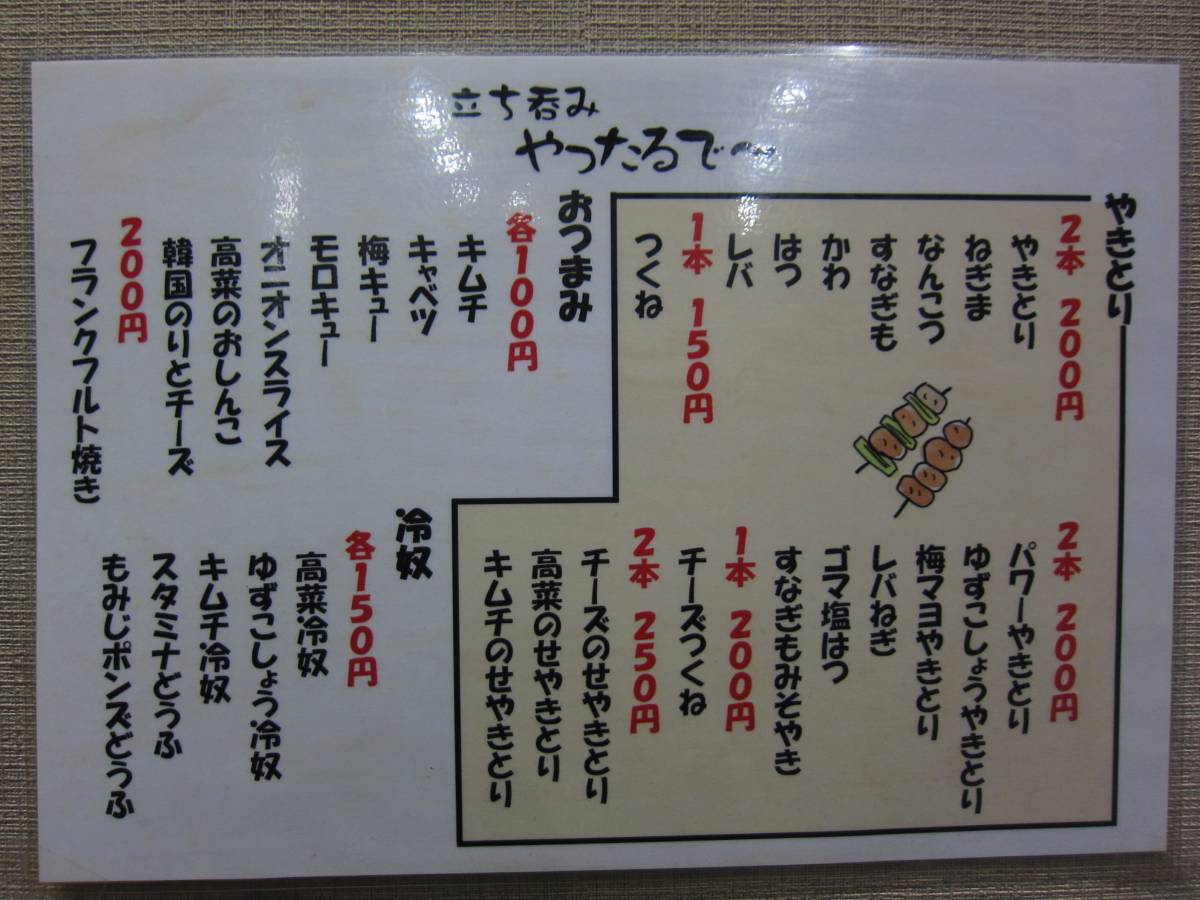 立ち呑み
やったるで〜
やきとり
2本 200円
やきとり
ねぎま
なんこつ
すなぎも
かわ
はつ
レバ
1本 150円
つくね
2本 200円
パワーやきとり
ゆずこしょうやきとり
梅マヨやきとり
レバねぎ
ゴマ塩はつ
すなぎもみそやき
1本 200円
チーズつくね
2本 250円
チーズのせやきとり
高菜のせやきとり
キムチのせやきとり
おつまみ
各100円
キムチ
キャベツ
梅キュー
モロキュー
オニオンスライス
高菜のおしんこ
韓国のりとチーズ
200円
フランクフルト焼き
冷奴
各150円
高菜冷奴
ゆずこしょう冷奴
キムチ冷奴
スタミナどうふ
もみじポンズどうふ